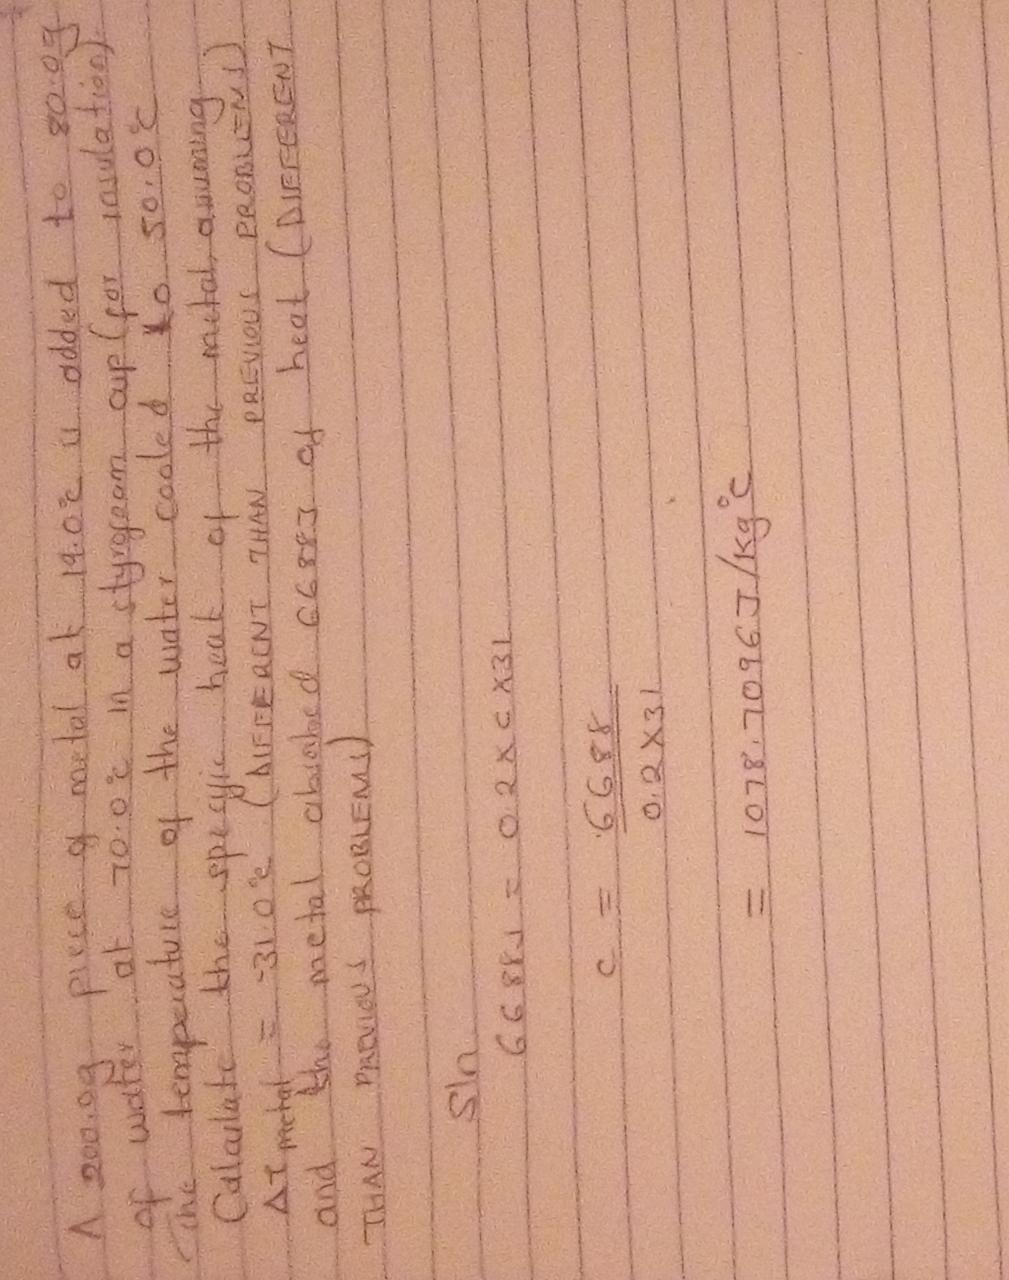 A 200.0g piece of metal at 19.0°c is added to 80.0g
of water at 70.0°c in a styrofoam cup (for insulation).
The temperature of the water cooled to 50.0°c
Calculate the specific heat of the metal, assuming
ΔT metal = -31.0°c (DIFFERENT THAN PREVIOUS PROBLEMS)
and the metal absorbed 6688J of heat (DIFFERENT
THAN PREVIOUS PROBLEMS)
Sln
6688J = 0.2 x c x 31
c = 6688
0.2 X 31
= 1078.7096J/kg°c